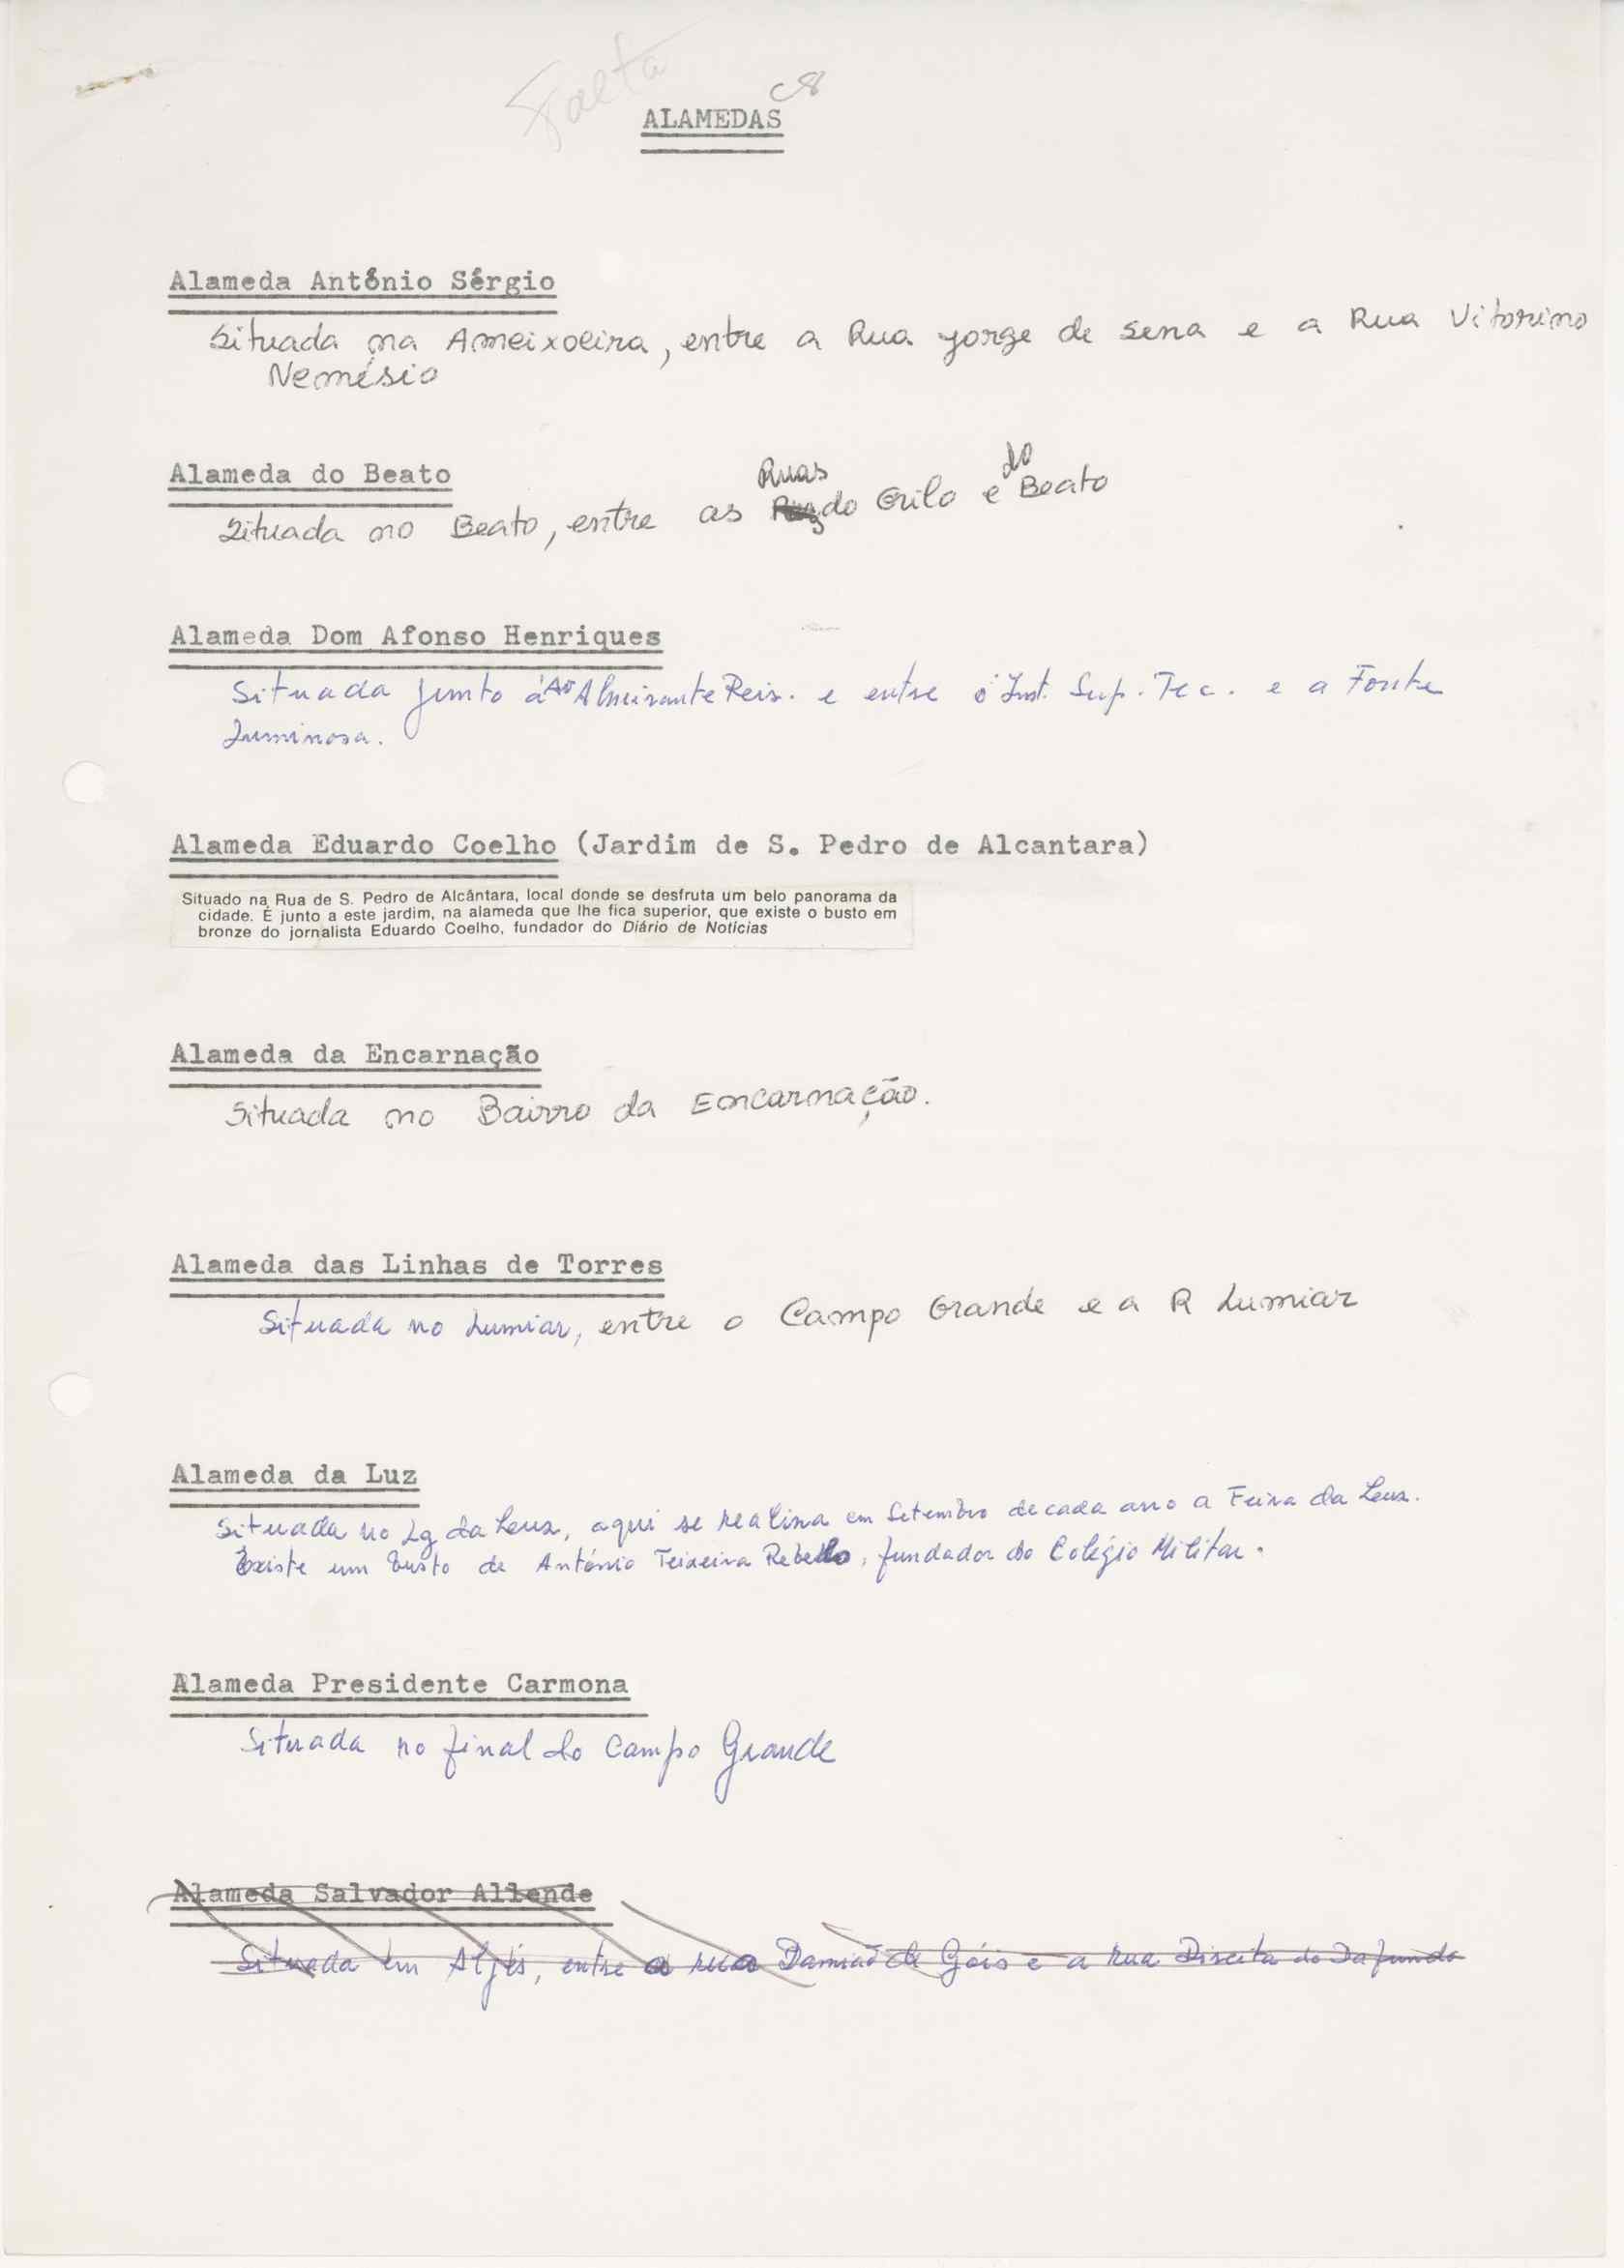 Falta
ALAMEDAS
Alameda António Sérgio
Situada na Ameixoeira, entre a Rua Jorge de Sena e a Rua Vitorino
Nemésio
Alameda do Beato
Ruas do
Situada no Beato, entre as do Grilo e Beato
Alameda Dom Afonso Henriques
Situada junto à Av Almirante Reis. e entre o Inst. Sup. Tec. e a Fonte
Luminosa.
Alameda Eduardo Coelho (Jardim de S. Pedro de Alcantara)
Situado na Rua de S. Pedro de Alcântara, local donde se desfruta um belo panorama da
cidade. É junto a este jardim, na alameda que lhe fica superior, que existe o busto em
bronze do jornalista Eduardo Coelho, fundador do Diário de Notícias
Alameda da Encarnação
Situada no Bairro da Encarnação.
Alameda das Linhas de Torres
Situada no Lumiar, entre o Campo Grande e a R Lumiar
Alameda da Luz
Situada no Lg da Luz, aqui se realiza em Setembro de cada ano a Feira da Luz.
Existe um busto de António Teixeira Rebello, fundador do Colégio Militar.
Alameda Presidente Carmona
Situada no final do Campo Grande
Alameda Salvador Allende
Situada em Algés, entre a rua Damião de Góis e a Rua Direita do Dafundo